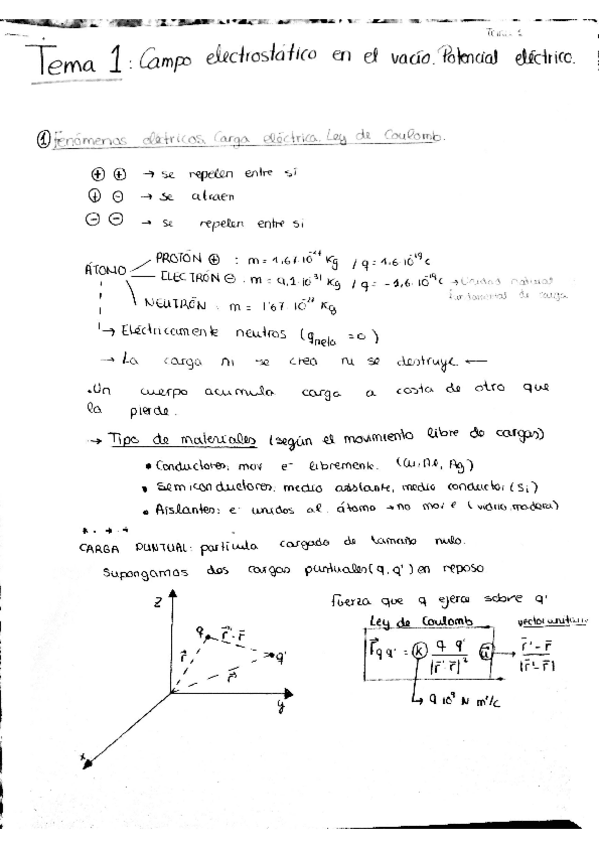 Tema 1
Tema 1: Campo electrostático en el vacío. Potencial eléctrico.
① Fenómenos eletricos. Carga eléctrica. Ley de Coulomb.
⊕ ⊕ → se repelen entre si
⊕ ⊖ → se atraen
⊖ ⊖ → se repelen entre si
ÁTOMO
PROTÓN ⊕ : m = 1,67·10⁻²⁷ Kg / q = 1,6·10⁻¹⁹ C
ELECTRÓN ⊖ : m = 9,1·10⁻³¹ Kg / q = -1,6·10⁻¹⁹ C → Unidad natural
fundamental de carga
NEUTRÓN : m = 1'67·10⁻²⁷ Kg
→ Eléctricamente neutros (q neta = 0)
→ La carga ni se crea ni se destruye. ←
• Un cuerpo acumula carga a costa de otro que
la pierde.
→ Tipo de materiales (según el movimiento libre de cargas)
• Conductores: mov e⁻ libremente. (Cu, Al, Ag)
• Semiconductores: medio aislante, medio conductor (Si)
• Aislantes: e⁻ unidos al átomo → no mov e⁻ (vidrio, madera)
CARGA PUNTUAL: partícula cargada de tamaño nulo.
Supongamos dos cargas puntuales (q, q') en reposo
z
q
r⃗'-r⃗
r⃗
q'
r⃗'
y
x
Fuerza que q ejerce sobre q'
Ley de Coulomb
vector unitario
F⃗qq' = K q q' / |r⃗'-r⃗|² u⃗ → r⃗'-r⃗ / |r⃗'-r⃗|
→ 9·10⁹ N m²/C